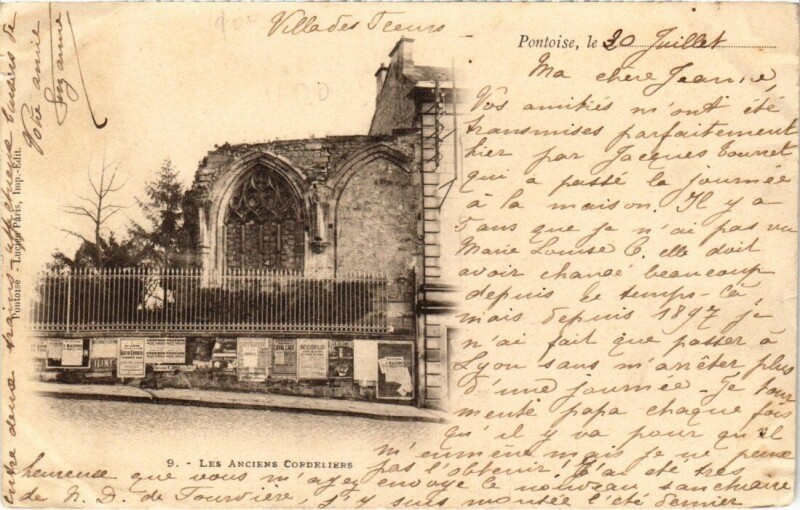 1900
Villa des Fleurs
Pontoise, le 20 Juillet
Ma chère Jeanne,
Vos amitiés m'ont été
transmises parfaitement
hier par Jacques Tournet
qui a passé la journée
à la maison. Il y a
5 ans que je n'ai pas vu
Marie Louise C. elle doit
avoir changé beaucoup
depuis ce temps-là
mais depuis 1897 je
n'ai fait que passer à
Lyon sans m'arrêter plus
d'une journée - Je tour
mente papa chaque fois
qu'il y va pour qu'il
m'emmène mais je ne peux
pas l'obtenir! J'ai été très
heureuse que vous m'ayez envoyé le nouveau sanctuaire
de N. D. de Fourvière, j'y suis montée l'été dernier
entre deux trains - baisers de
Votre amie
Suzanne
Pontoise - Lucien Pâris, Imp.-Edit.
9. - Les Anciens Cordeliers